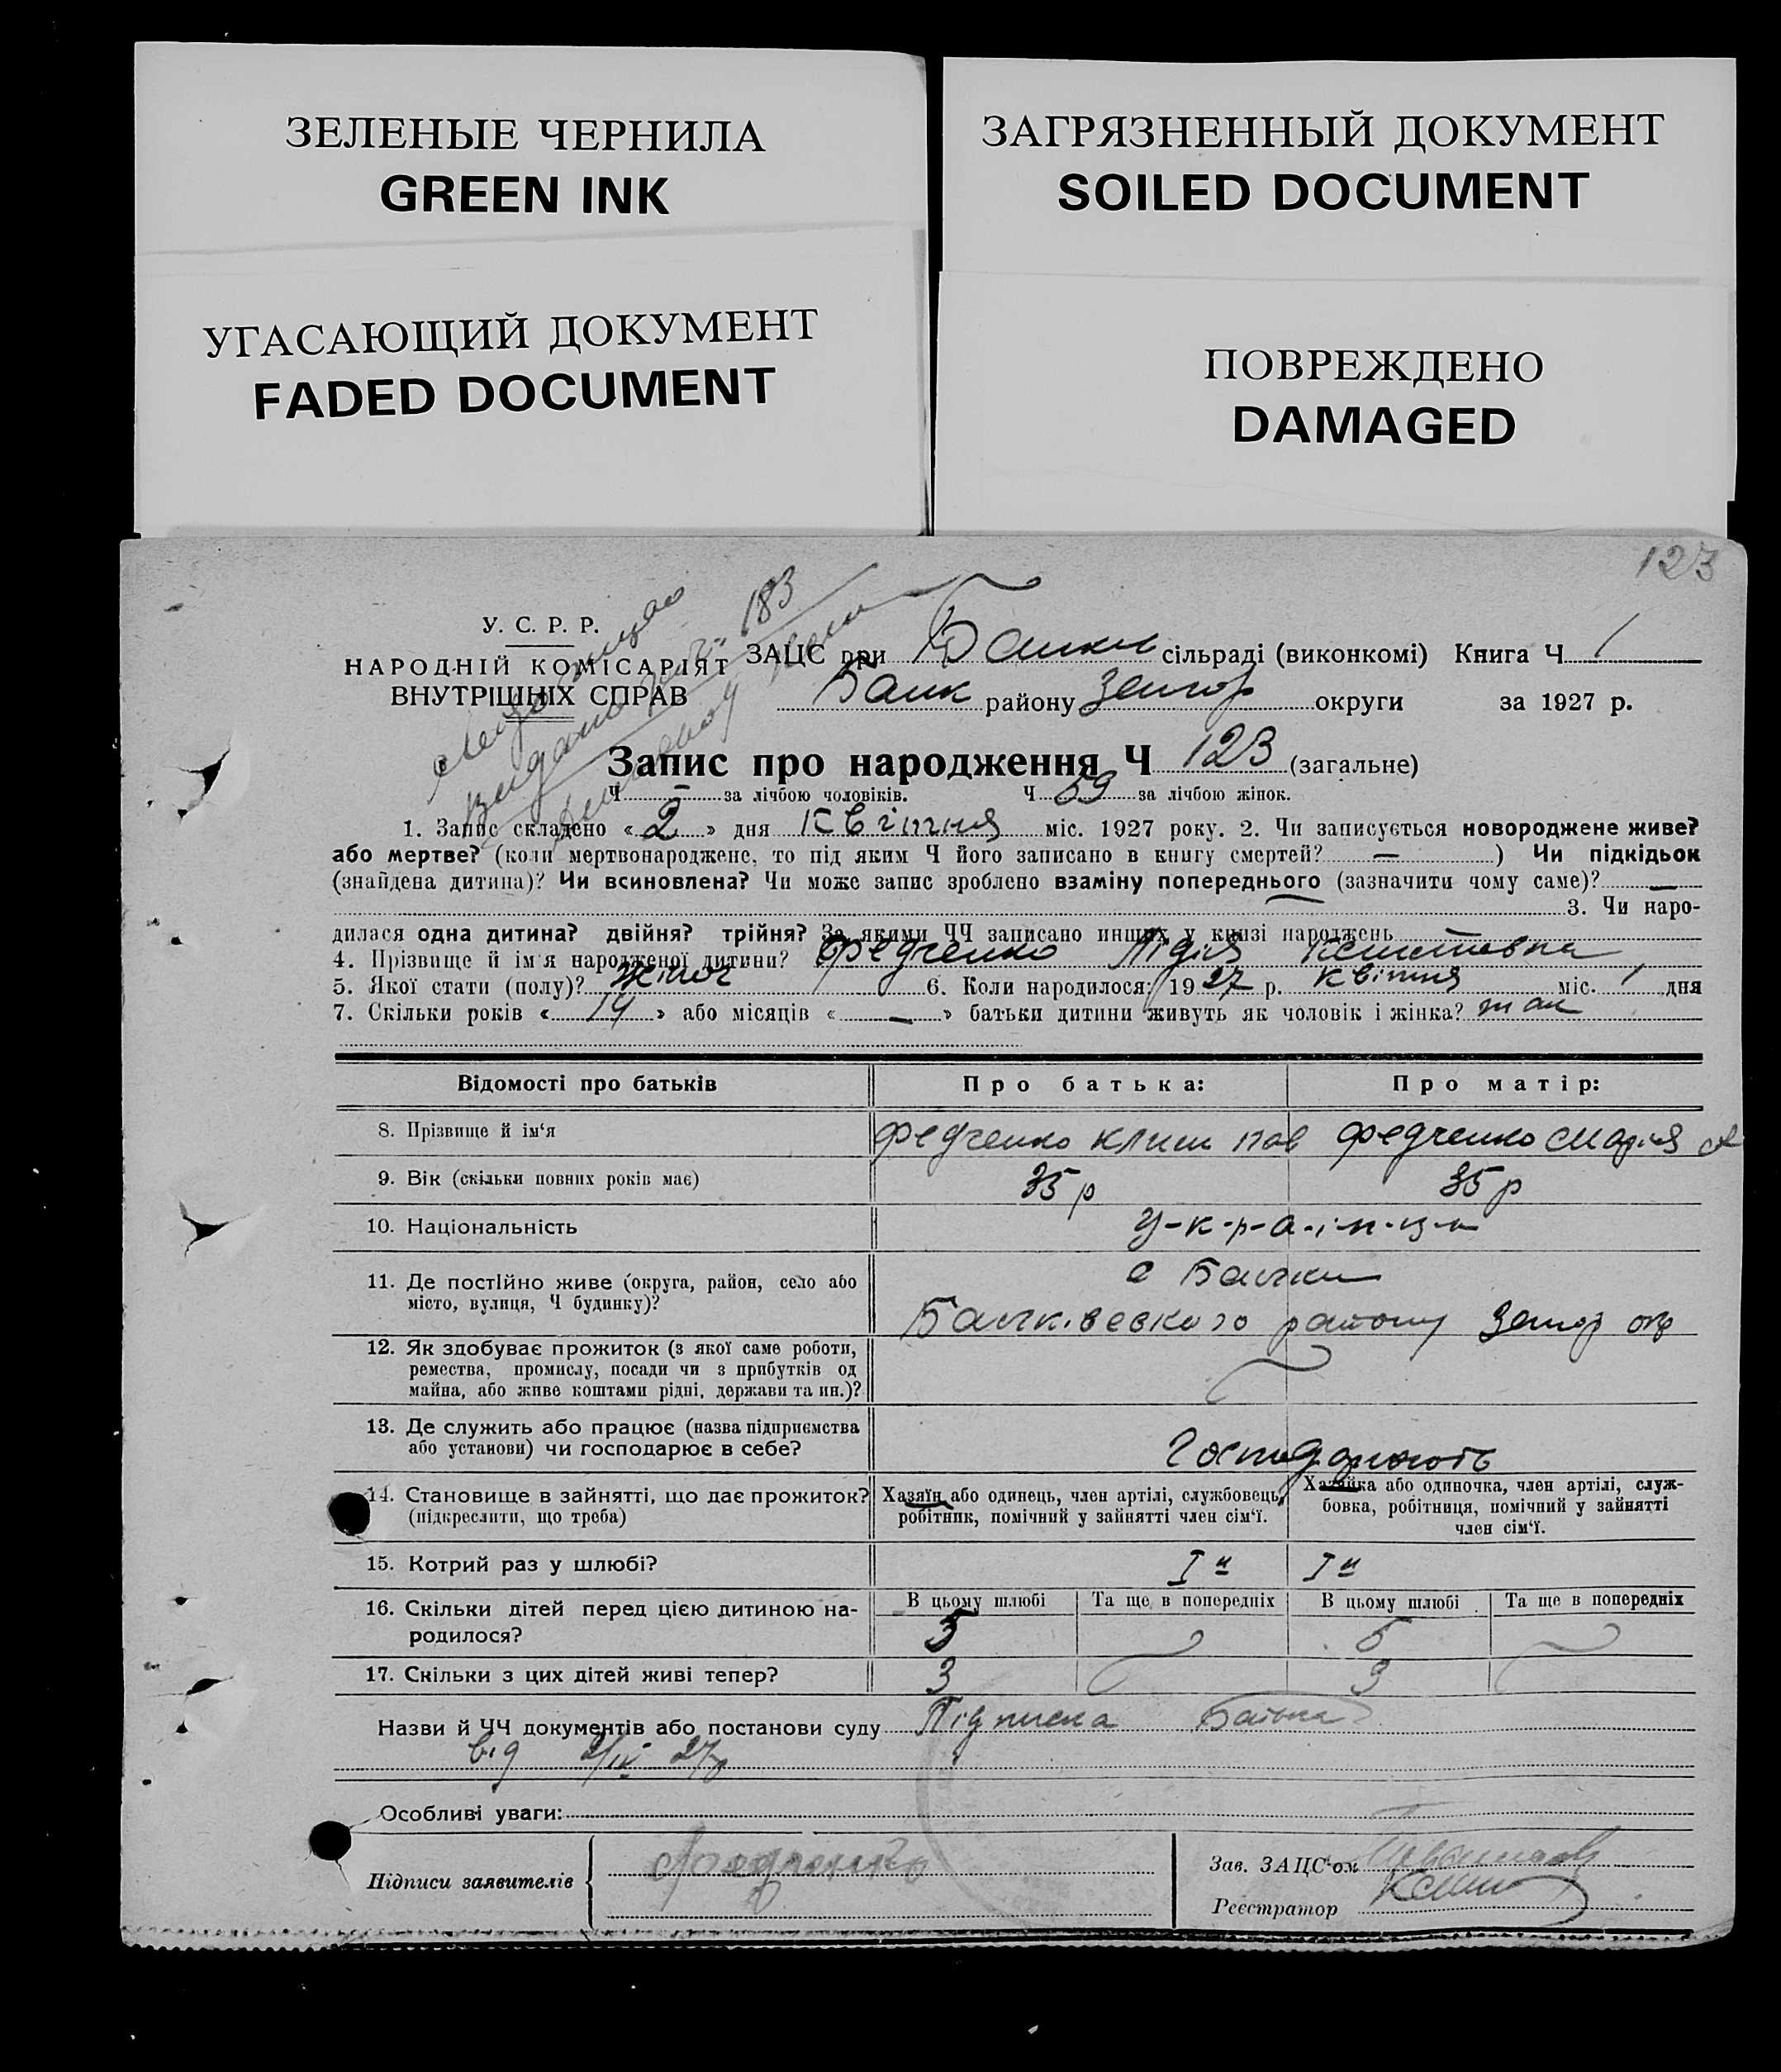 ЗЕЛЕНЫЕ ЧЕРНИЛА
GREEN INK
УГАСАЮЩИЙ ДОКУМЕНТ
FADED DOCUMENT
ЗАГРЯЗНЕННЫЙ ДОКУМЕНТ
SOILED DOCUMENT
ПОВРЕЖДЕНО
DAMAGED
123
183
У. С. Р. Р.
НАРОДНІЙ КОМІСАРІЯТ
ВНУТРІШНІХ СПРАВ
ЗАЦС при сільраді (виконкомі) Книга Ч 1
району округи за 1927 р.
Запис про народження Ч 123 (загальне)
Ч — за лічбою чоловіків. Ч 59 за лічбою жінок.
1. Запис складено « 2 » дня Квітня міс. 1927 року. 2. Чи записується новороджене живе?
або мертве? (коли мертвонароджене, то під яким Ч його записано в книгу смертей? — ) Чи підкідьок
(знайдена дитина)? Чи всиновлена? Чи може запис зроблено взаміну попереднього (зазначити чому саме)? —
3. Чи наро-
дилася одна дитина? двійня? трійня? За якими ЧЧ записано инших у книзі народжень
4. Прізвище й ім'я народженої дитини? Федченко Лідія
5. Якої стати (полу)? жіноч 6. Коли народилося: 1927 р. Квітня міс. 1 дня
7. Скільки років « 14 » або місяців « — » батьки дитини живуть як чоловік і жінка? так
Відомості про батьків Про батька: Про матір:
8. Прізвище й ім'я Федченко Клим Пав Федченко Марія
9. Вік (скільки повних років має) 35 р 35 р
10. Національність У-к-р-а-і-н-ц-и
11. Де постійно живе (округа, район, село або
місто, вулиця, Ч будинку)?
району
12. Як здобуває прожиток (з якої саме роботи,
ремества, промислу, посади чи з прибутків од
майна, або живе коштами рідні, держави та ин.)?
13. Де служить або працює (назва підприємства
або установи) чи господарює в себе? Господарюють
14. Становище в зайнятті, що дає прожиток?
(підкреслити, що треба)
Хазяїн або одинець, член артілі, службовець,
робітник, помічний у зайнятті член сім'ї.
Хазяйка або одиночка, член артілі, служ-
бовка, робітниця, помічний у зайнятті
член сім'ї.
15. Котрий раз у шлюбі? Iй Iй
16. Скільки дітей перед цією дитиною на-
родилося?
В цьому шлюбі Та ще в попередніх В цьому шлюбі Та ще в попередніх
5 5
17. Скільки з цих дітей живі тепер? 3 3
Назви й ЧЧ документів або постанови суду Підписка батька
від 2/IV 27р
Особливі уваги:
Підписи заявителів Федченко
Зав. ЗАЦС'ом
Реєстратор